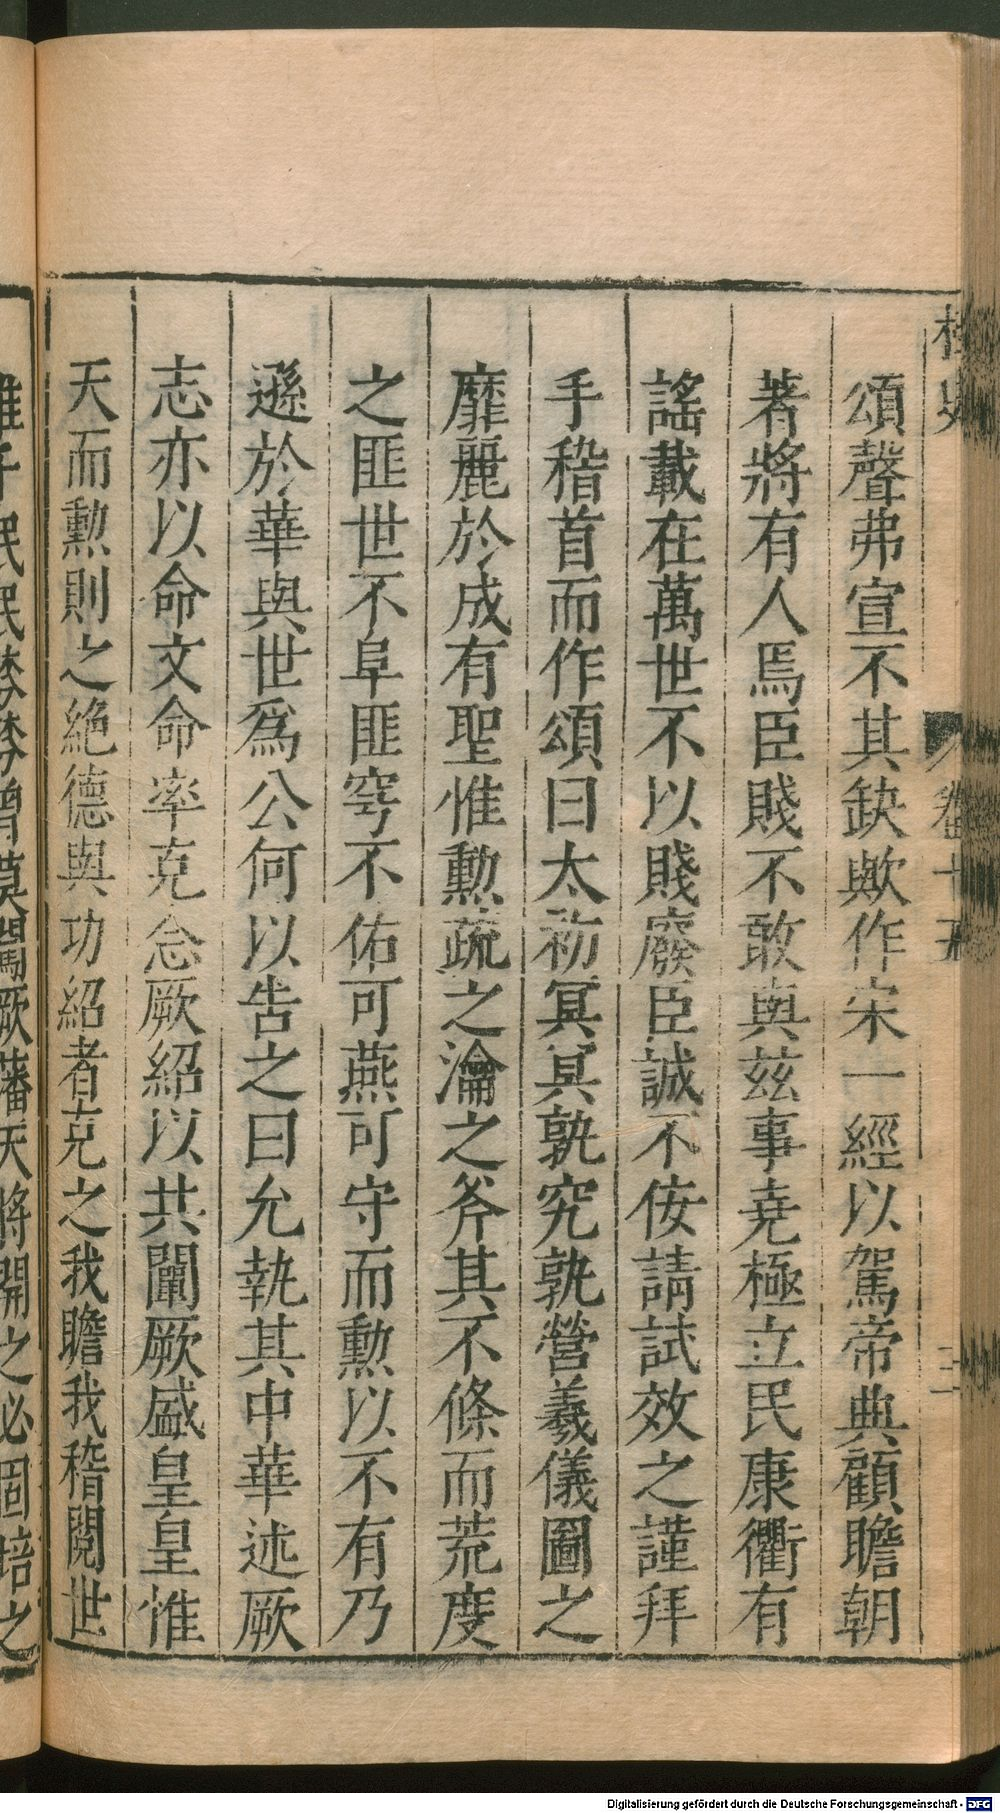 頌聲弗宣不其缺歟作宋一經以駕帝典顧瞻朝
著將有人焉臣賤不敢與茲事堯極立民康衢有
謠載在萬世不以賤廢臣誠不侫請試效之謹拜
手稽首而作頌曰太初冥冥孰究孰營羲儀圖之
靡麗於成有聖惟勲疏之瀹之斧其不條而荒度
之匪世不阜匪穹不佑可燕可守而勲以不有乃
遜於華與世爲公何以告之曰允執其中華述厥
志亦以命文命率克念厥紹以共闡厥盛皇皇惟
天而勲則之絶德與功紹者克之我瞻我稽閱世
厥藩天將開之必固培之
卷十五
Digitalisierung gefördert durch die Deutsche Forschungsgemeinschaft - DFG